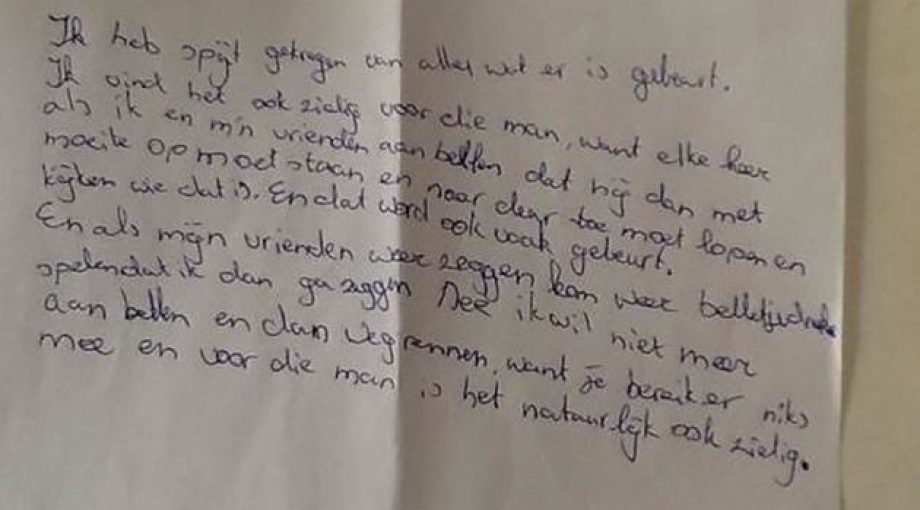 Ik heb spijt gekregen van alles wat er is gebeurt.
Ik vind het ook zielig voor die man, want elke keer
als ik en m'n vrienden aan bellen dat hij dan met
moeite op moet staan en naar deur toe moet lopen en
kijken wie dat is. En dat word ook vaak gebeurt.
En als mijn vrienden weer zeggen kom weer belletjedrukke
spelen dat ik dan ga zeggen Nee ik wil niet meer
aan bellen en dan weg rennen, want je bereik er niks
mee en voor die man is het natuurlijk ook zielig.